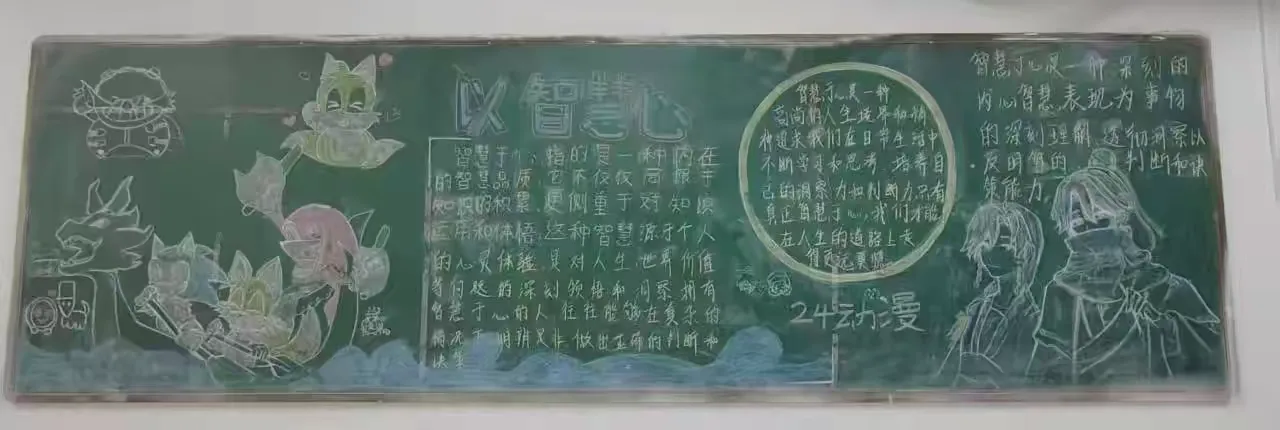 以智慧心
智慧于心,指的是一种内在
的智慧品质,它不仅仅局限于
知识的积累,更侧重于对知识
运用和体悟,这种智慧源于个人
的心灵体验,是对人生,世界价值
等问题的深刻领悟和洞察拥有
智慧于心的人往往能够在复杂的
情况下明辨是非做出正确的判断和
决策
智慧于心是一种
高尚的人生境界和精
神追求我们在日常生活中
不断学习和思考,培养自
己的洞察力和判断力只有
真正智慧于心,我们才能
在人生的道路上走
得更远更稳
24动漫
智慧于心是一种深刻的
内心智慧,表现为事物
的深刻理解,透彻洞察以
及明智的判断和决
策能力